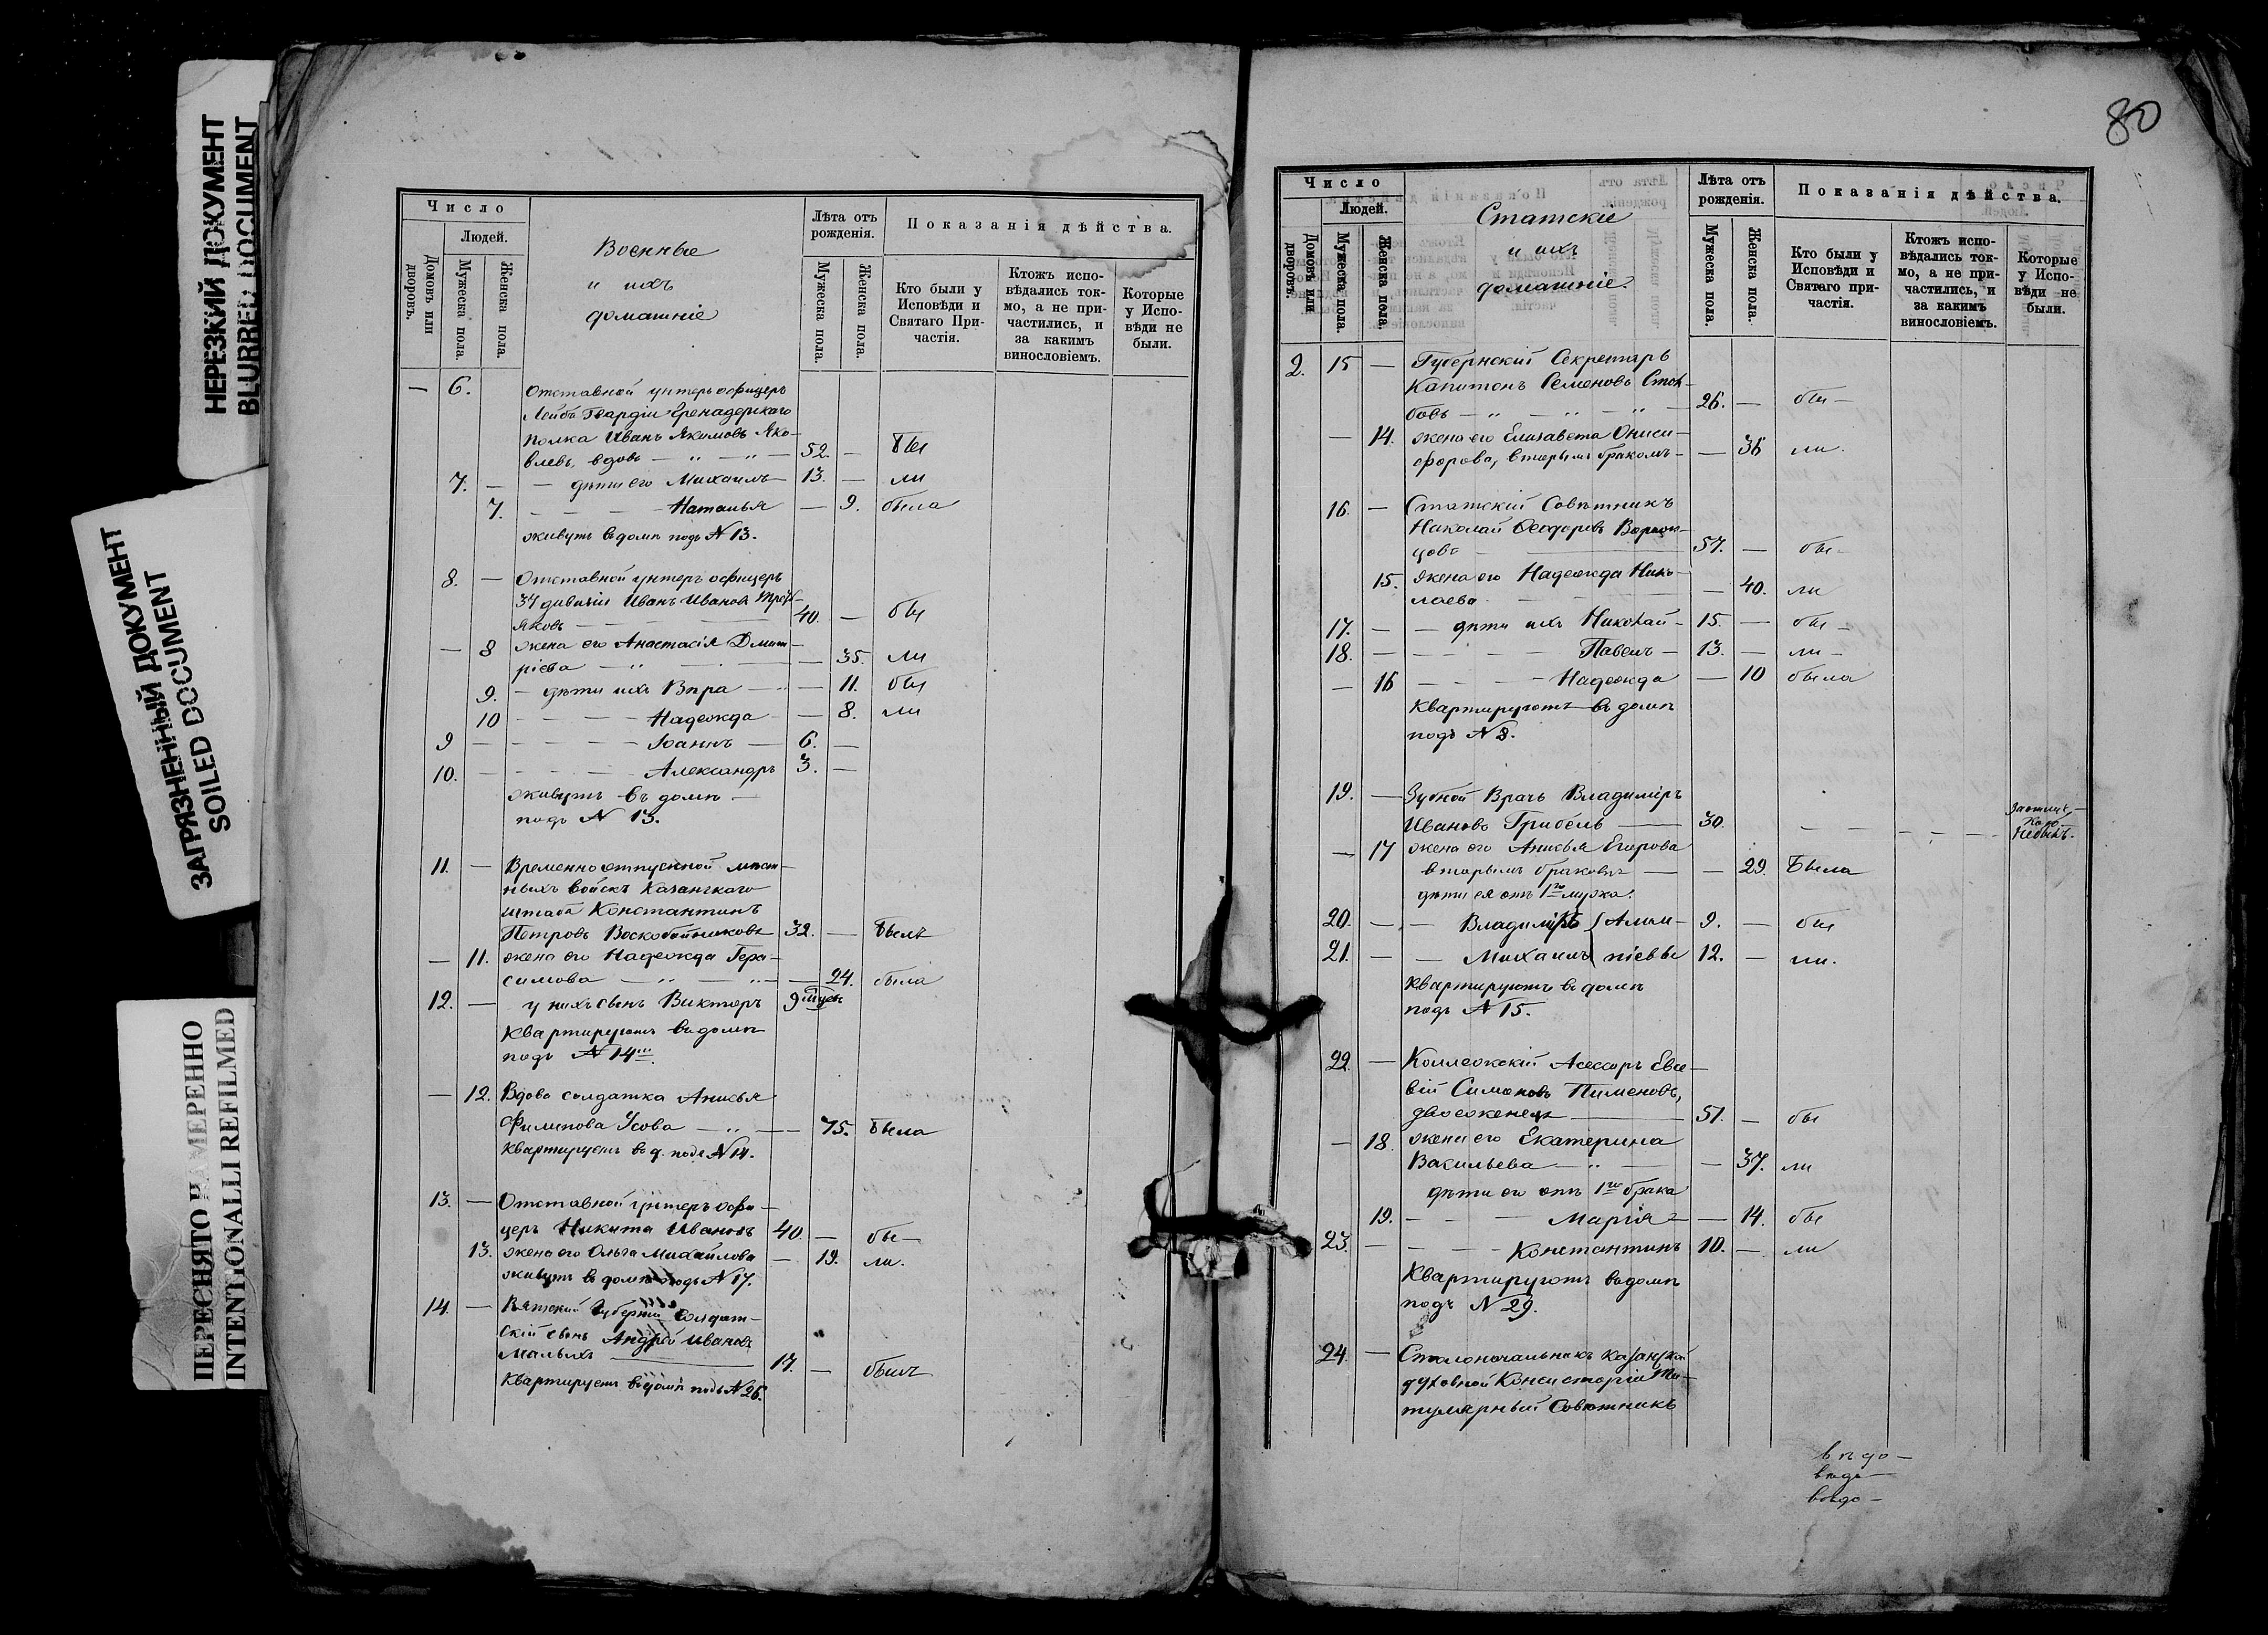 НЕРЕЗКИЙ ДОКУМЕНТ
BLURRED DOCUMENT
ЗАГРЯЗНЕННЫЙ ДОКУМЕНТ
SOILED DOCUMENT
ПЕРЕСНЯТО НАМЕРЕННО
INTENTIONALLI REFILMED
Число
Людей.
Домовъ или дворовъ.
Мужеска пола.
Женска пола.
Военные
и ихъ
домашніе
Лѣта отъ рожденія.
Мужеска пола.
Женска пола.
Показанія дѣйства.
Кто были у Исповѣди и Святаго Причастія.
Ктожъ исповѣдались токмо, а не причастились, и за какимъ винословіемъ.
Которые у Исповѣди не были.
— 6. Отставной унтеръ офицеръ
Лейбъ Гвардіи Гренадерскаго
полка Иванъ Якимовъ Яко-
влевъ, вдовъ — „ — „ — 52. — бы
7. — — дѣти его Михаилъ — 13. — ли
7. — — — — Наталья — 9. была
живутъ въ домѣ подъ N 13.
8. — Отставной унтеръ офицеръ
37 дивизіи Иванъ Ивановъ Треть-
яковъ — — — 40. — бы
— 8 жена его Анастасія Дмит-
ріева — „ — — 35. ли
9. — дѣти ихъ Вѣра — — 11. бы
10 — — — — Надежда — 8. ли
9 — — — — Іоаннъ — 6. —
10. — — — — Александръ 3. —
живутъ въ домѣ —
подъ N 13.
11. — Временно отпускной мѣст-
ныхъ войскъ Казанскаго
штаба Константинъ
Петровъ Воскобойниковъ 32. — былъ
— 11. жена его Надежда Гера-
симова — „ — „ — — 24. была
12. — у нихъ сынъ Викторъ 9 мѣсяц
Квартируютъ въ домѣ
подъ N 14
— 12. Вдова солдатка Анисья
Филипова Усова — „ — — 75. была
Квартируетъ въ д. подъ N 14.
13. — Отставной унтеръ офи-
церъ Никита Ивановъ 40. — бы —
13. жена его Ольга Михайлова — 19. ли.
живутъ въ домѣ подъ N 17.
14. — Вятской Губерніи Солдат-
скій сынъ Андрей Ивановъ
Малыхъ — 17. — былъ
Квартируетъ въ домѣ подъ N 26.
80
Число
Людей.
Домовъ или дворовъ.
Мужеска пола.
Женска пола.
Статскіе
и ихъ
домашніе.
Лѣта отъ рожденія.
Мужеска пола.
Женска пола.
Показанія дѣйства.
Кто были у Исповѣди и Святаго причастія.
Ктожъ исповѣдались токмо, а не причастились, и за какимъ винословіемъ.
Которые у Исповѣди не были.
2. 15 — Губернскій Секретарь
Капитонъ Семеновъ Стол-
бовъ — „ — „ — „ — 26. — бы —
— 14. жена его Елизавета Ониси-
форова, вторымъ бракомъ — — 36 ли.
16. — Статскій Совѣтникъ
Николай Ѳеодоровъ
57. — бы —
15. жена его Надежда Нико-
лаева — — 40. ли
17. — — дѣти ихъ Николай — 15. — бы —
18. — — — — Павелъ — 13. — ли —
— 16 — — — — Надежда — 10 была
Квартируютъ въ домѣ
подъ N 8.
19. — Зубной Врачъ Владиміръ
Ивановъ Грибель — 30. — — — — — не былъ.
— 17 жена его Анисья Егорова
вторымъ бракомъ — — 29. Была
дѣти ея отъ 1го мужа:
20. — — Владиміръ 9. — бы
21. — — Михаилъ 12. — ли.
Квартируютъ въ домѣ
подъ N 15.
22. — Коллежскій Асессоръ Евсе-
вій Симоновъ Пименовъ,
двоеженецъ — 51. — бы
— 18. жена его Екатерина
Васильева — „ — — 37. ли
дѣти его отъ 1го брака
19. — — — Марія — — 14. бы
23. — — — — Константинъ 10. — ли
Квартируютъ въ домѣ
подъ N 29.
24. — Столоначальникъ Казанской
духовной Консисторіи Ти-
тулярный Совѣтникъ